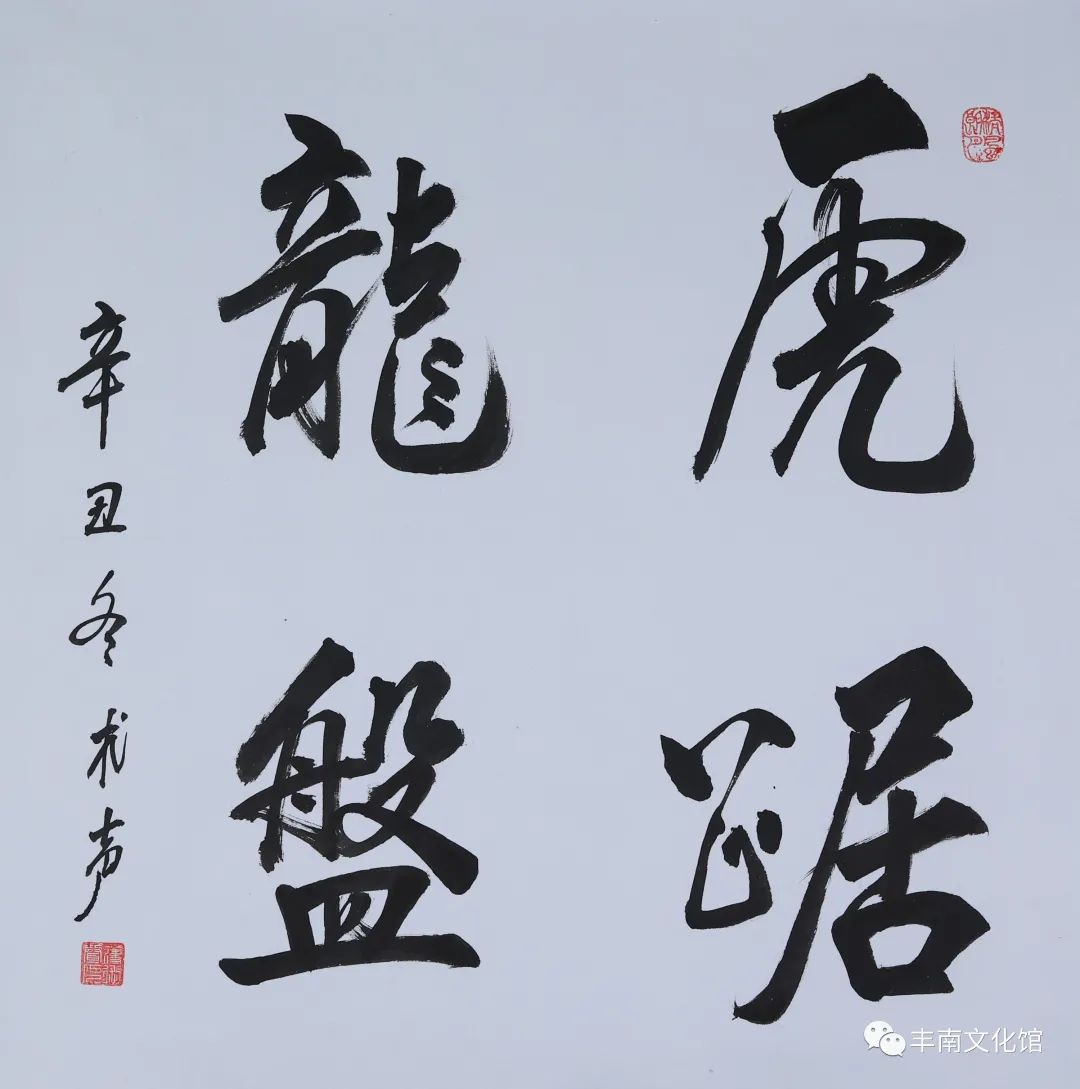 虎踞
龍盤
辛丑冬术声
丰南文化馆